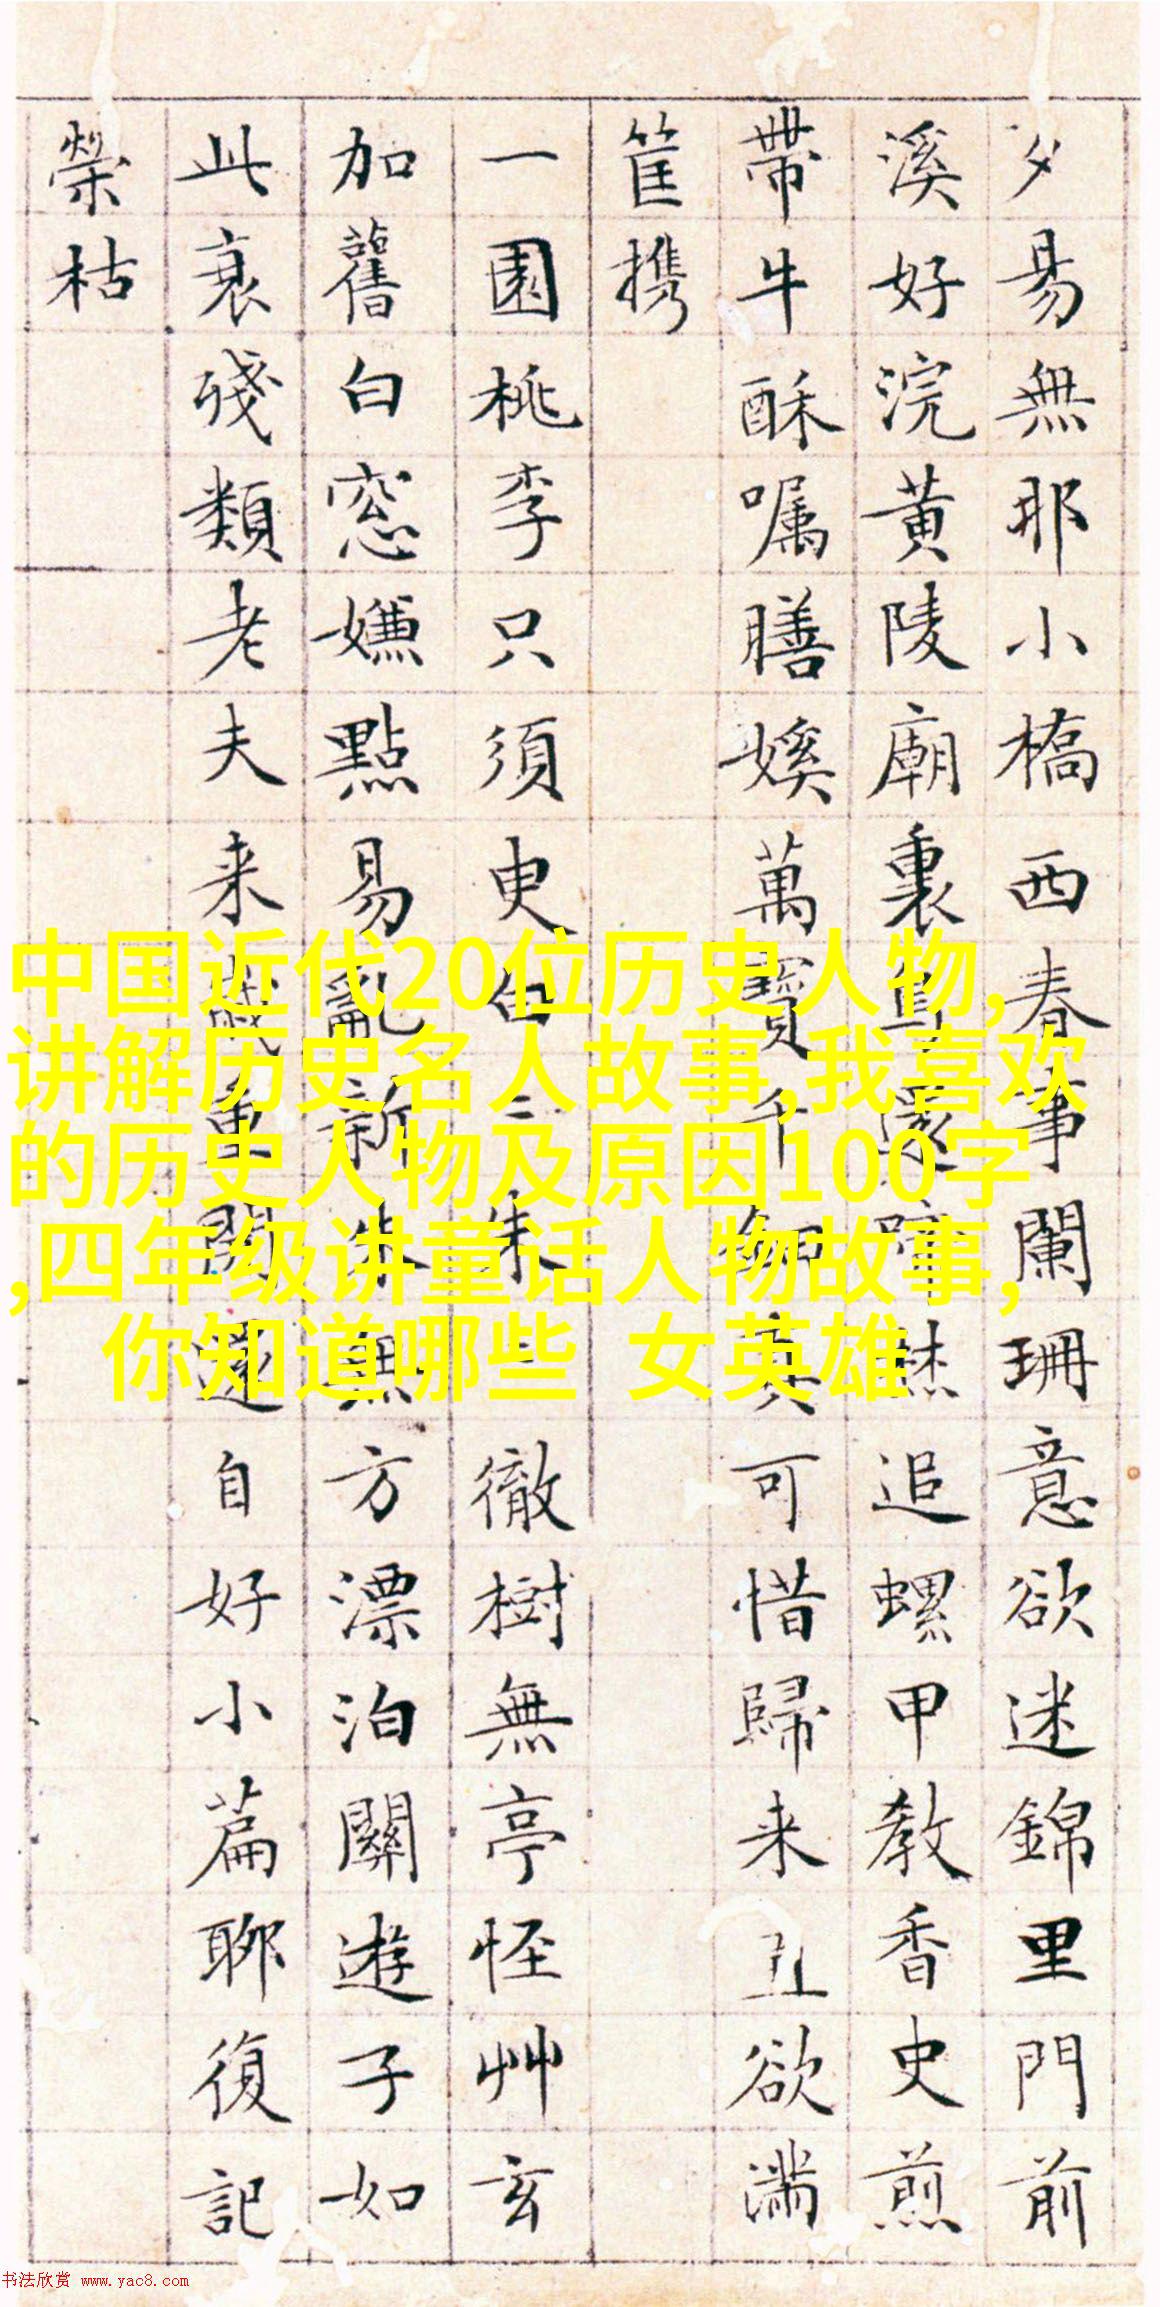 夕易無耶小橋西春事闌珊意欲迷錦里門前
溪好浣黃陵廟裏追螺甲教香史煎
帶牛酥嘱膳嫨萬寶千鈿真可惜歸来欲滿
筐携
一園桃李只須臾白二朱二徹樹無亭怪艸玄
加舊白窓嫌點易亂新朱無方漂泊關遊子如
此衰殘類老夫来歲重開還自好小篇聊復記
榮枯
中国近代20位历史人物,
讲解历史名人故事,我喜欢
的历史人物及原因100字
,四年级讲童话人物故事,
你知道哪些 女英雄
书法欣赏 www.yac8.com